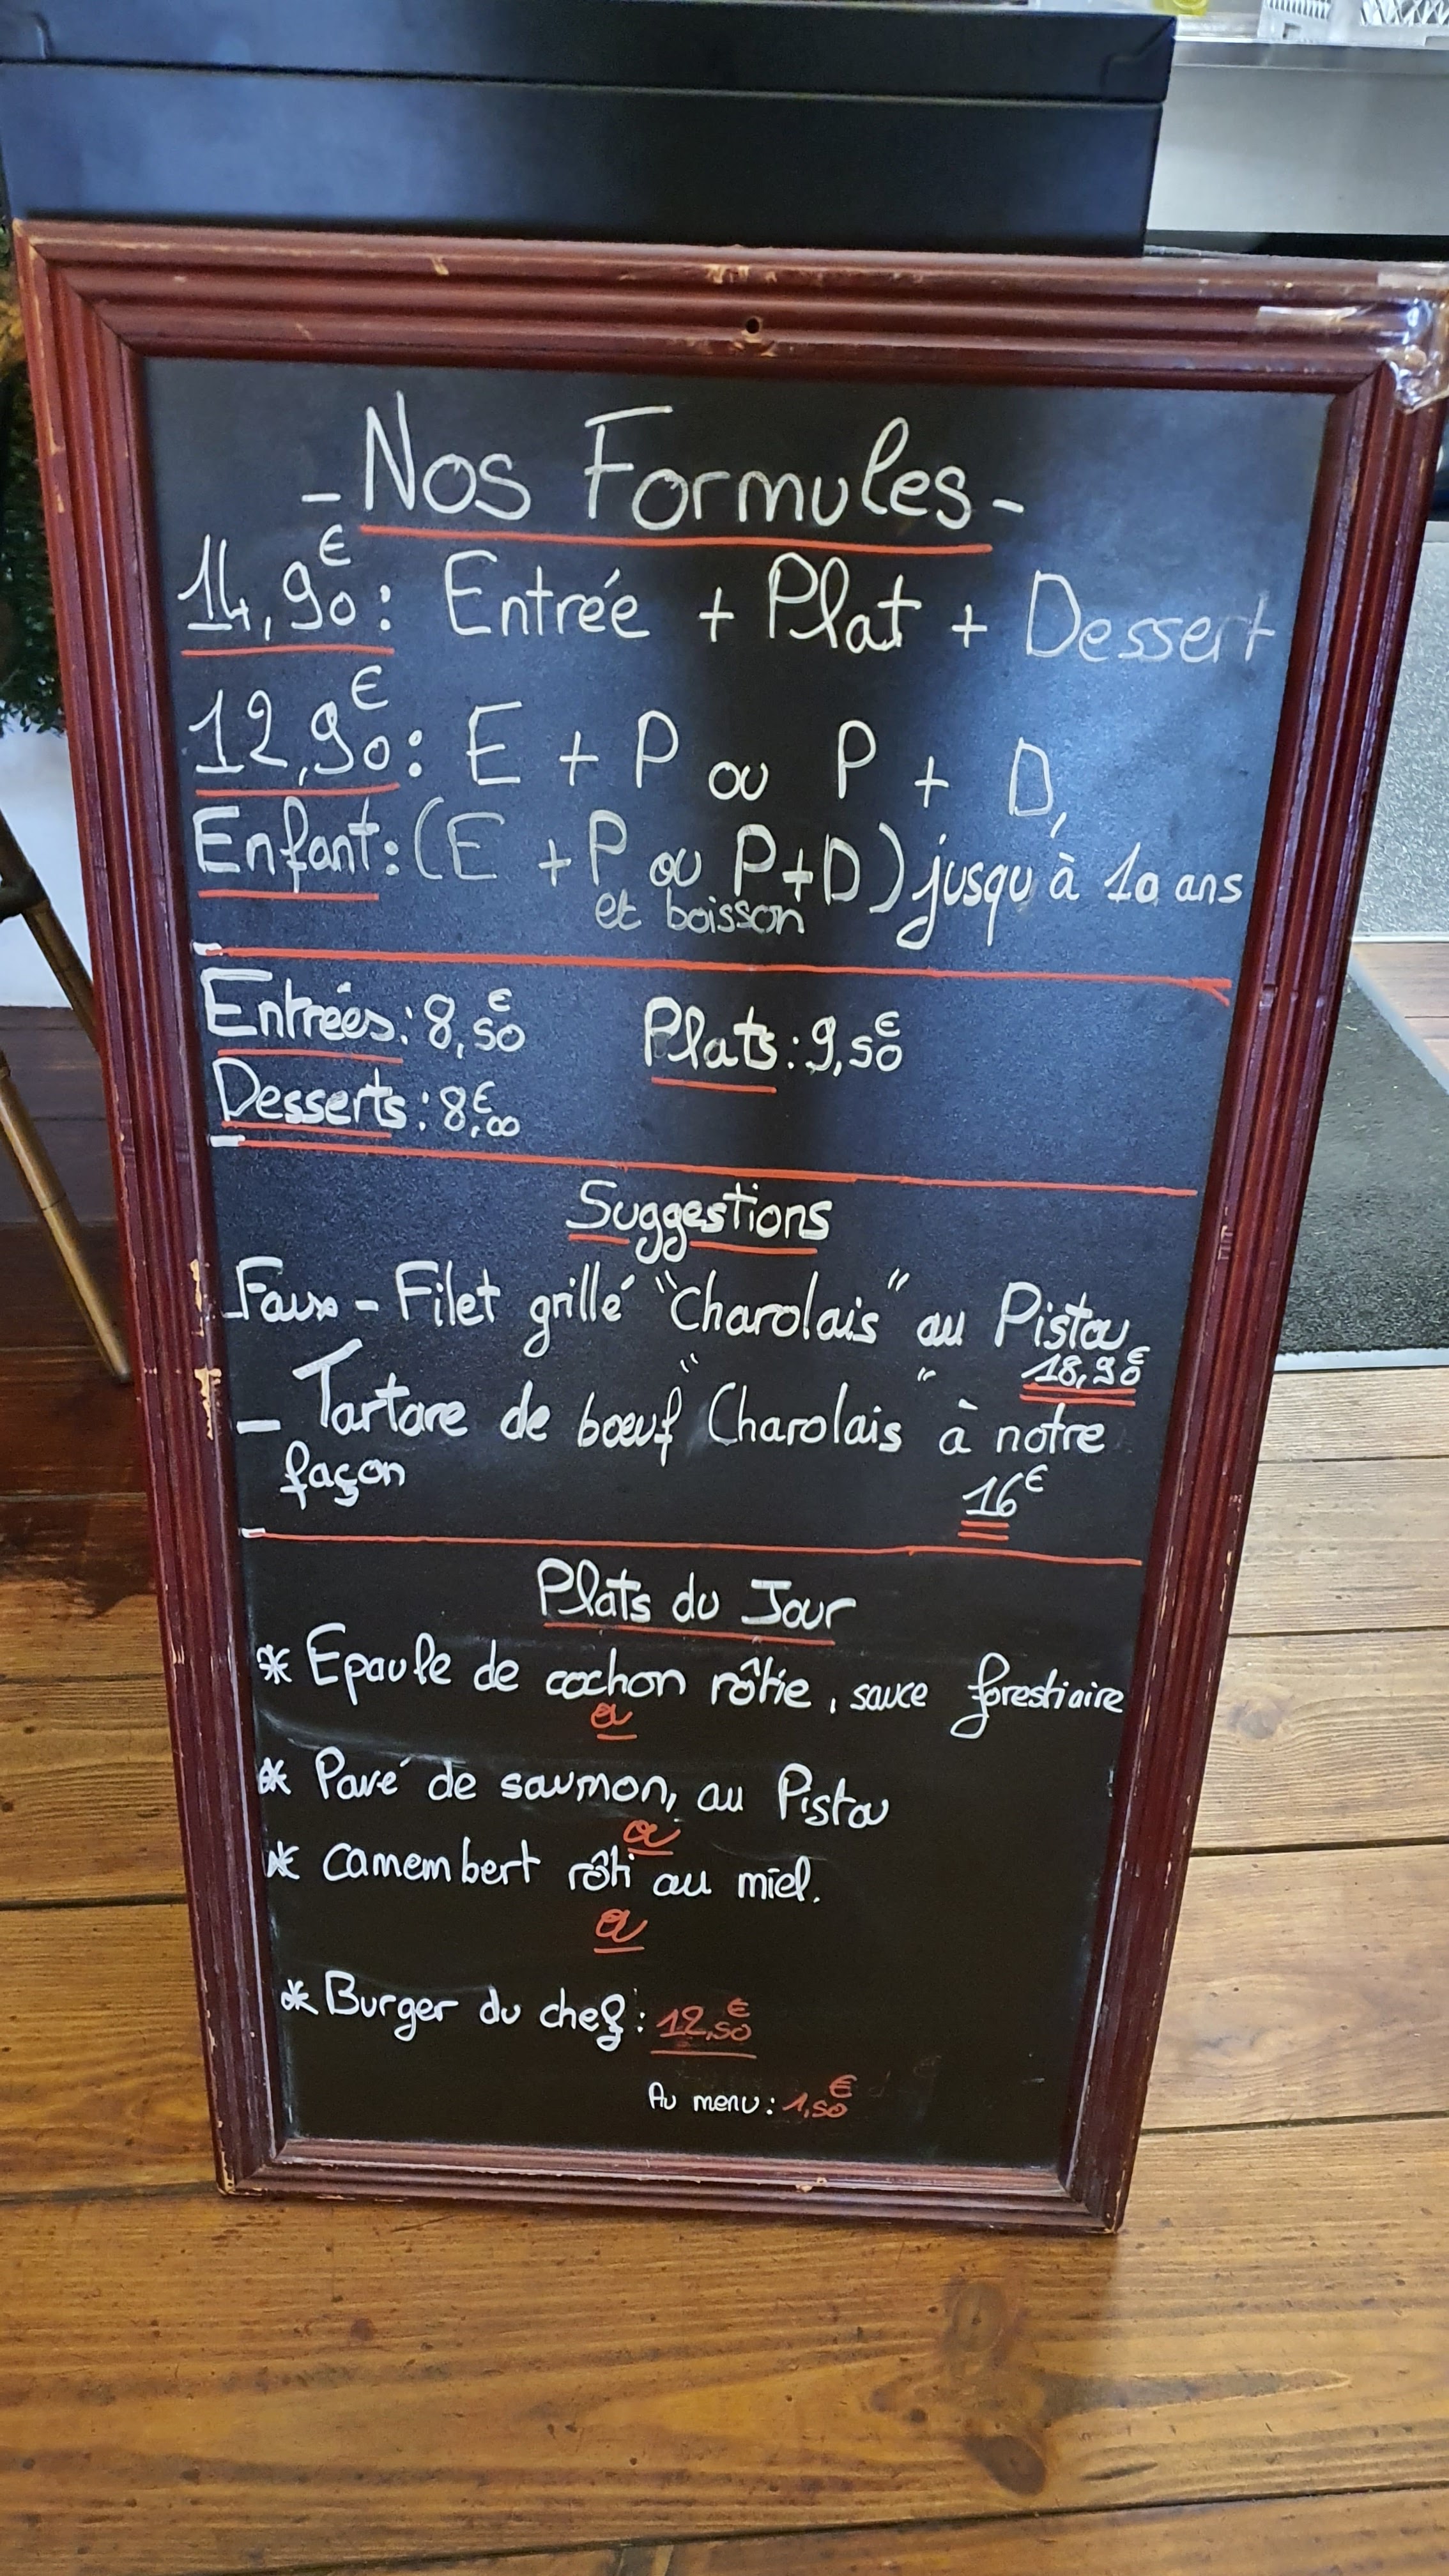 - Nos Formules -
14,90€ : Entrée + Plat + Dessert
12,90€ : E + P ou P + D,
Enfant : (E + P ou P+D) jusqu'à 10 ans
et boisson
Entrées : 8,50€ Plats : 9,50€
Desserts : 8,00€
Suggestions
Faux - Filet grillé "Charolais" au Pistou
18,90€
- Tartare de bœuf "Charolais" à notre
façon
16€
Plats du Jour
* Epaule de cochon rôtie, sauce forestiaire
* Pavé de saumon, au Pistou
* Camembert rôti au miel.
* Burger du chef : 12,50€
Au menu : 1,50€